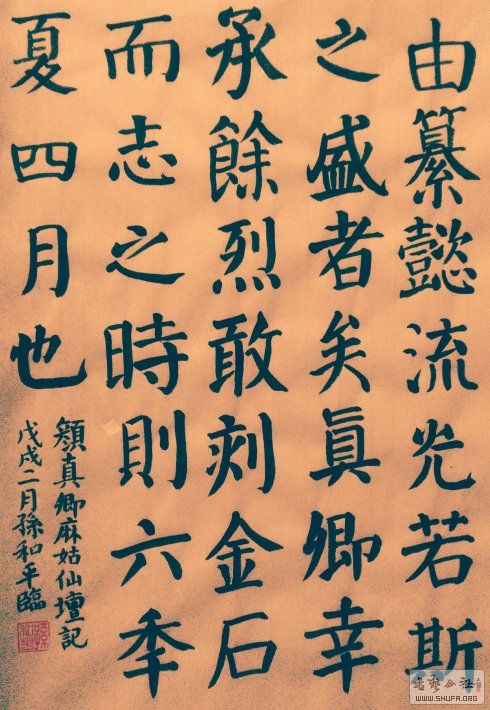 由纂懿流光若斯
之盛者矣眞卿幸
承餘烈敢刻金石
而志之時則六秊
夏四月也
顔真卿麻姑仙壇記
戊戌二月孫和平臨
WWW.SHUFA.ORG